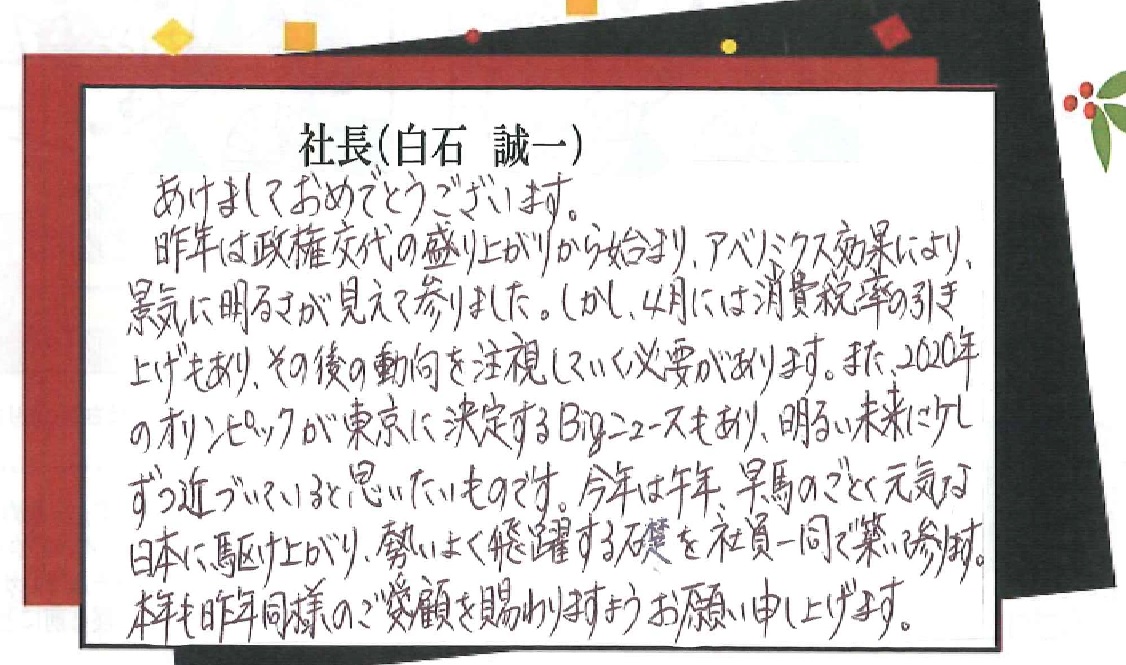 社長(白石 誠一)
あけましておめでとうございます。
昨年は政権交代の盛り上がりから始まり、アベノミクス効果により、
景気に明るさが見えて参りました。しかし、4月には消費税率の引き
上げもあり、その後の動向を注視していく必要があります。また、2020年
のオリンピックが東京に決定するBigニュースもあり、明るい未来に少し
ずつ近づいていると思いたいものです。今年は午年、早馬のごとく元気な
日本に駆け上がり、勢いよく飛躍する礎を社員一同で築いて参ります。
本年も昨年同様のご愛顧を賜わりますようお願い申し上げます。